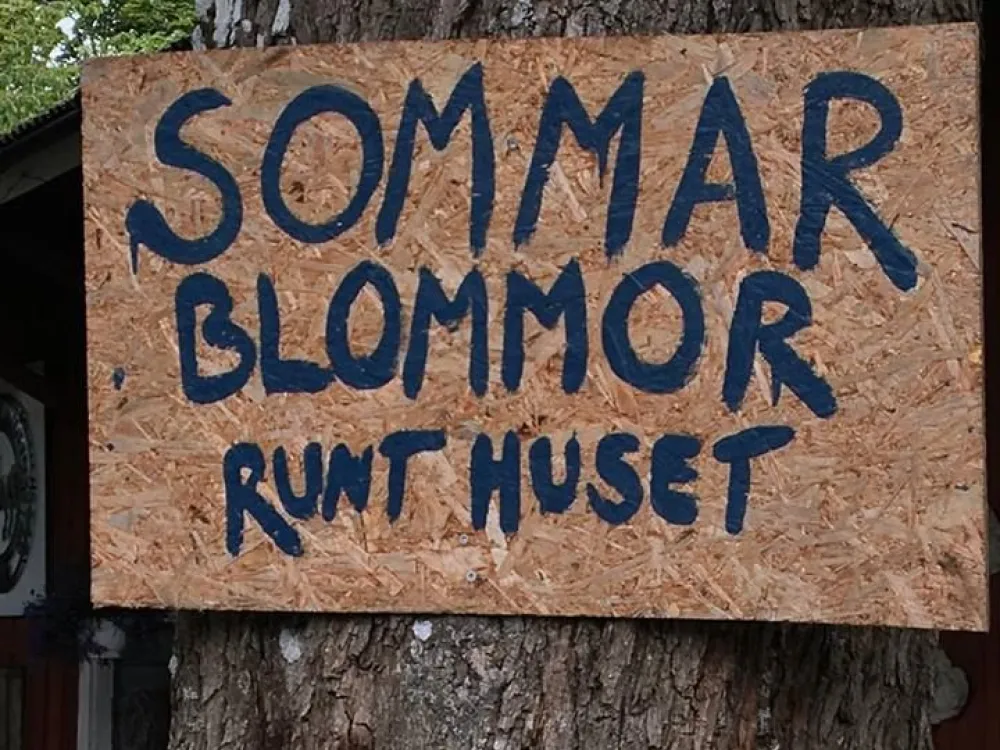 SOMMAR
BLOMMOR
RUNT HUSET